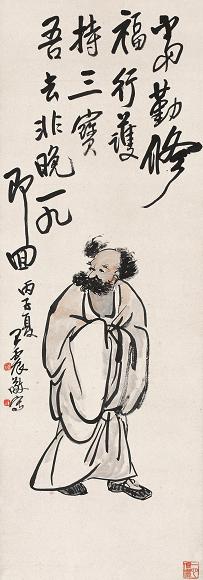 當勤修
福行護
持三寶
吾去非晚一九
即回
丙子夏
王震敬寫